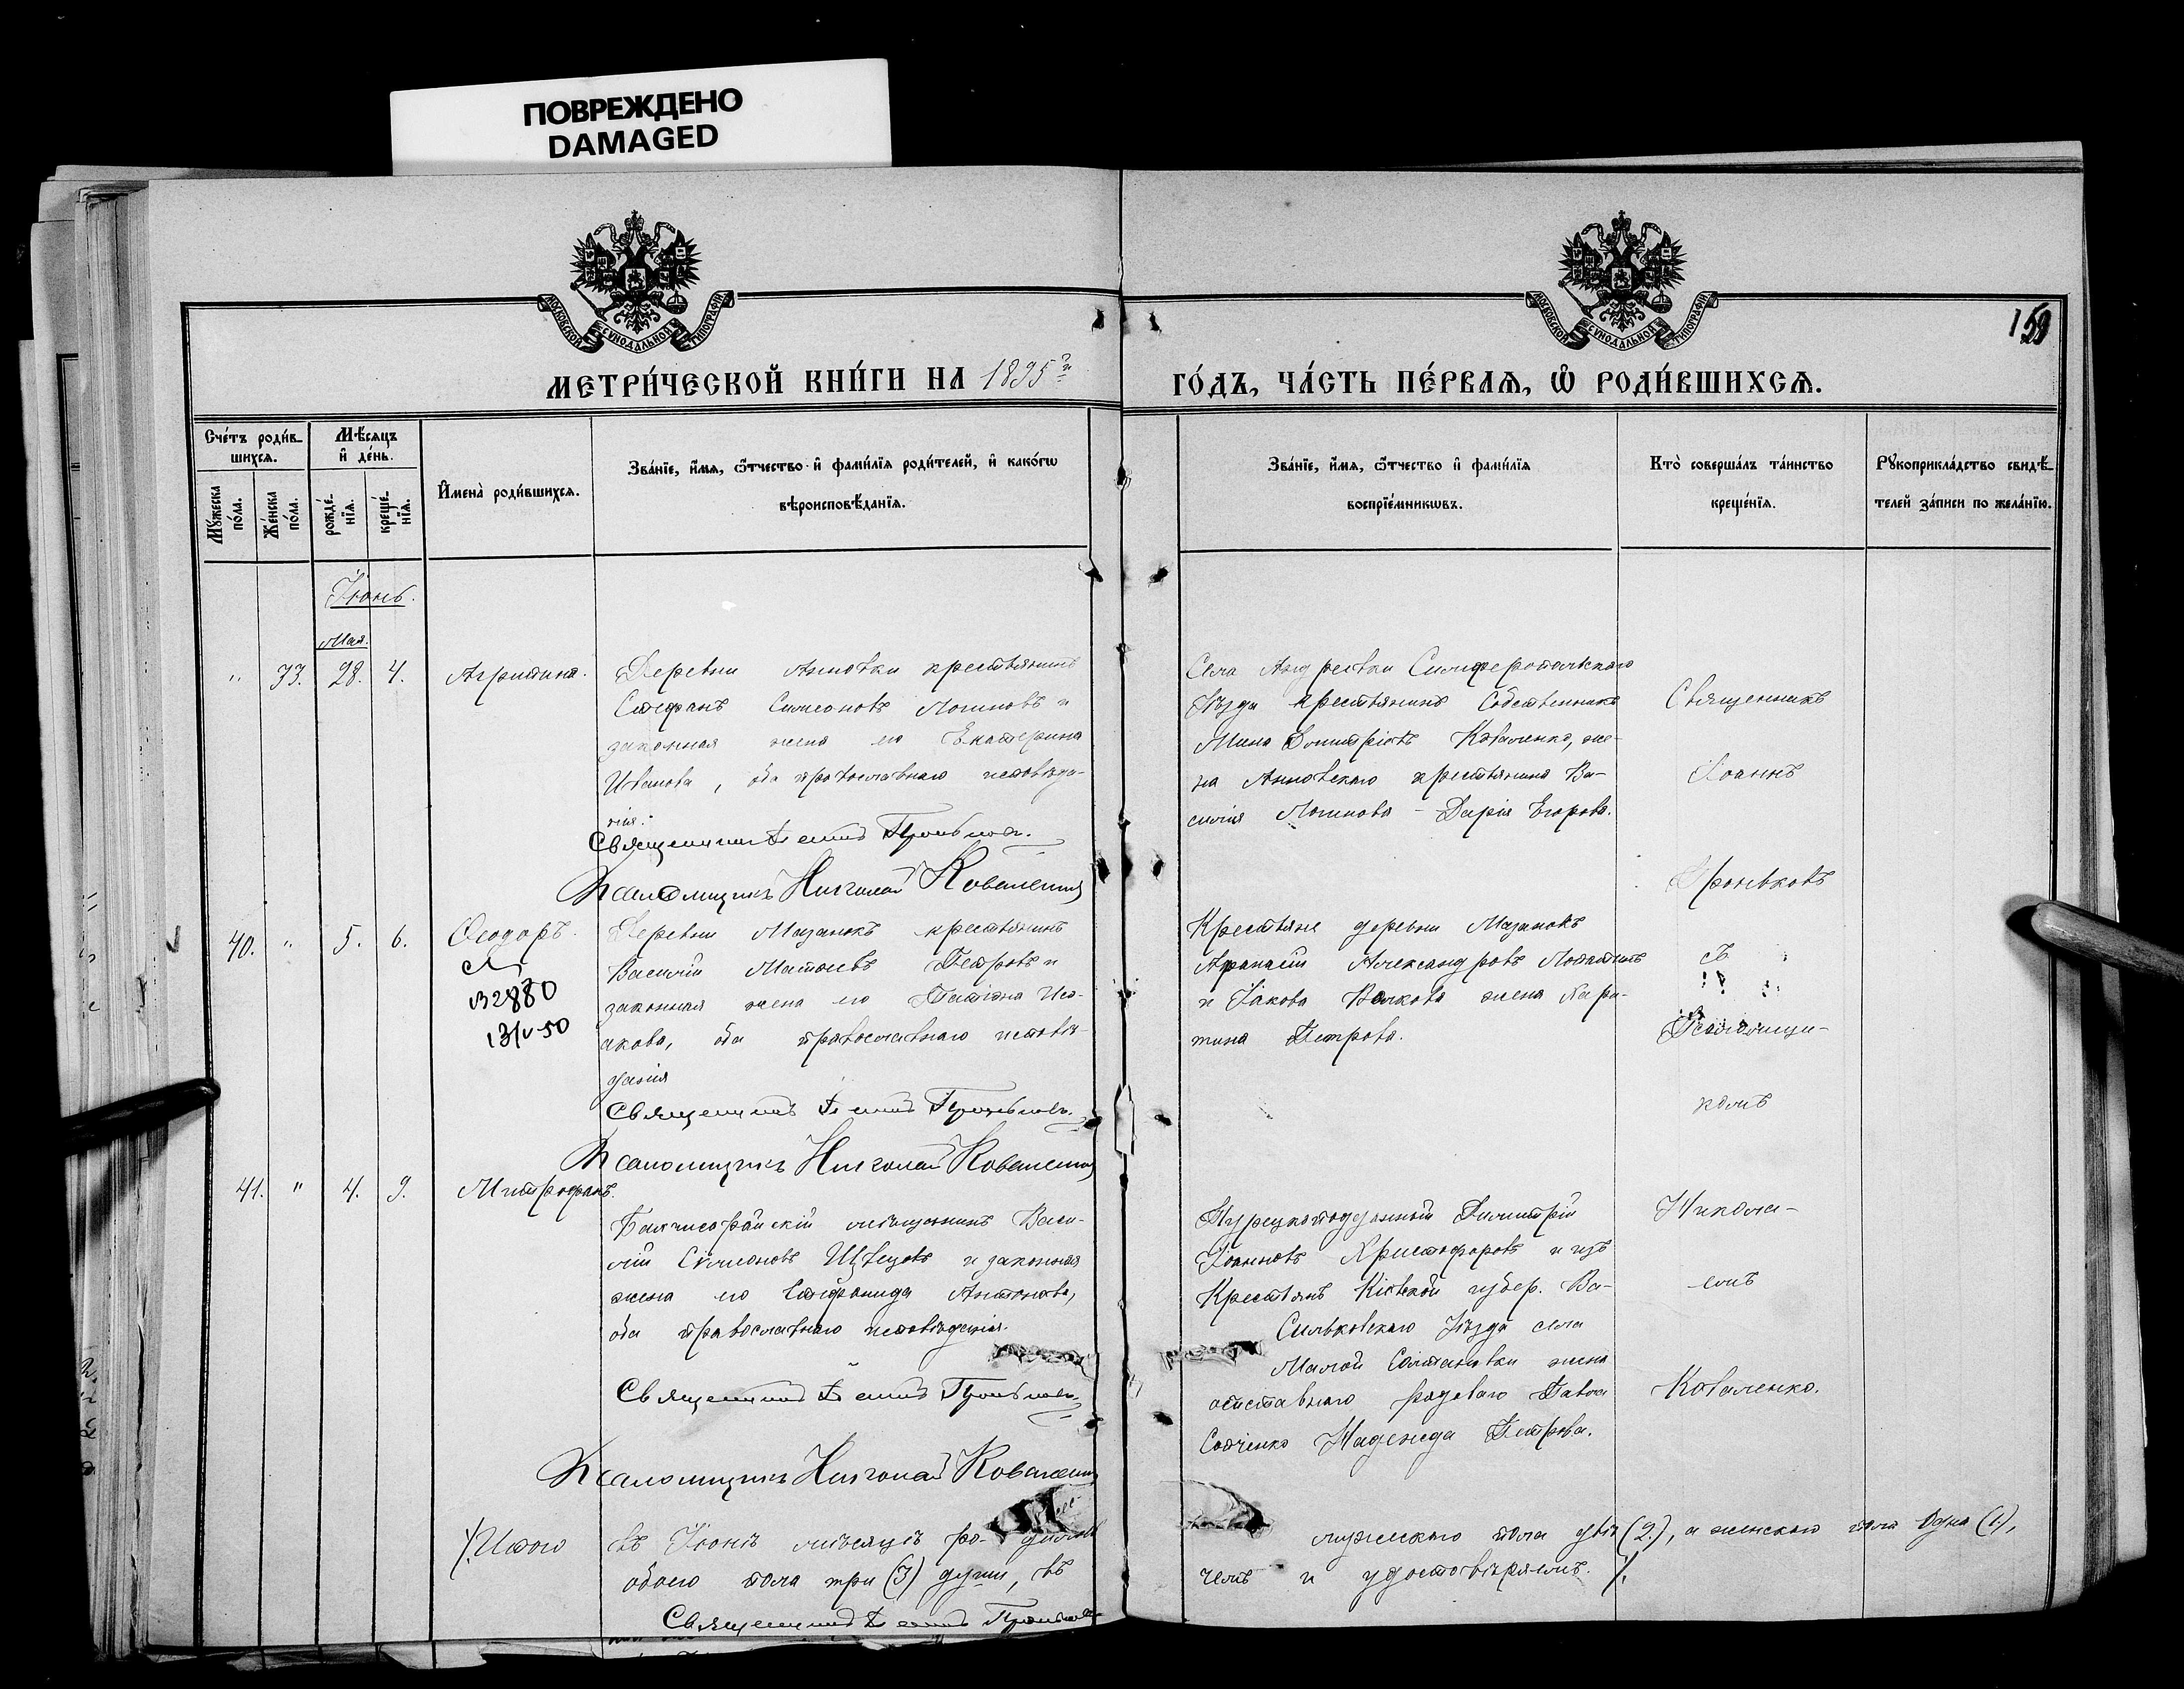 ПОВРЕЖДЕНО
DAMAGED
МОСКОВСКОЙ СѴНОДАЛЬНОЙ ТИПОГРАФІИ
МОСКОВСКОЙ СѴНОДАЛЬНОЙ ТИПОГРАФІИ
159
МЕТРИ́ЧЕСКОЙ КНИ́ГИ НА 1895 й
ГО́ДЪ, ЧА́СТЬ ПЕ́РВАѦ, Ѡ҆ РОДИ́ВШИХСѦ.
Сче́тъ роди́в-
шихсѧ.
Мꙋ́жеска по́ла.
Же́нска по́ла.
Мѣ́сѧцъ
и҆ де́нь.
рожде́-
нїѧ.
креще́-
нїѧ.
И҆мена̀ роди́вшихсѧ.
Зва́нїе, и҆́мѧ, ѻ҆́тчество и҆ фами́лїѧ роди́телей, и҆ како́гѡ
вѣроисповѣ́данїѧ.
Зва́нїе, и҆́мѧ, ѻ҆́тчество и҆ фами́лїѧ
воспрїе́мникѡвъ.
Кто̀ соверша́лъ та́инство
креще́нїѧ.
Рꙋкоприкла́дство свидѣ́-
телей за́писи по жела́нїю.
Іюнь.
Мая.
" 33. 28. 4. Агрипина.
Деревни Анновки крестьянинъ
Стефанъ Симеоновъ Логиновъ и
законная жена его Екатерина
Иванова, оба православнаго исповѣда-
нія.
Священникъ
Псаломщикъ Николай Коваленко
Села Андреевки Симферопольскаго
Уѣзда крестьянинъ Собственникъ
Мина Димитріевъ Коваленко, же-
на Анновскаго крестьянина Ва-
силія Логинова - Дарія Егорова.
Священникъ
Іоаннъ
40. " 5. 6. Ѳеодоръ.
В2880
13/V-50
Деревни Мазанокъ крестьянинъ
Василій Матѳеевъ Петровъ и
законная жена его Татіана Иса-
акова, оба православнаго исповѣ-
данія
Священникъ
Псаломщикъ Николай Коваленко
Крестьяне деревни Мазанокъ
Аѳанасій Александровъ Лопатинъ
и Іакова Волкова жена Хари-
тина Петрова.
съ
Псаломщи-
комъ
41. " 4. 9. Митрофанъ.
Бахчисарайскій мѣщанинъ Васи-
лій Симеоновъ Швецовъ и законная
жена его Стефанида Антонова,
оба православнаго исповѣданія.
Священникъ
Псаломщикъ Николай Коваленко
Турецкоподданный Димитрій
Іоанновъ Христофоровъ и изъ
Крестьянъ Кіевской губер. Ва-
сильковскаго Уѣзда села
Малой Солтановки жена
отставнаго рядоваго Павла
Надежда Петрова.
Никола-
емъ
Коваленко.
Итого въ Іюнѣ мѣсяцѣ ро-
обоего пола три (3) души, въ
Священникъ
мужескаго пола два (2), а женскаго пола одна (1),
чемъ и удостовѣряемъ.